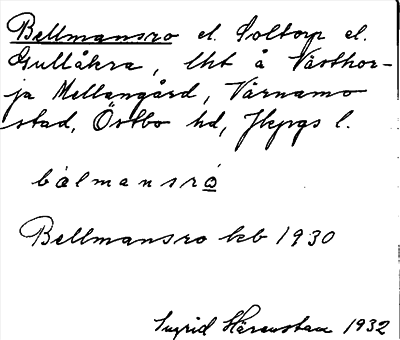 Bellmansro el. Soltorp el.
Gullåkra, lht å Västhor-
ja Mellangård, Värnamo
stad, Östbo hd, Jkpgs l.
bälmansrω
Bellmansro kb 1930
Ingrid 1932